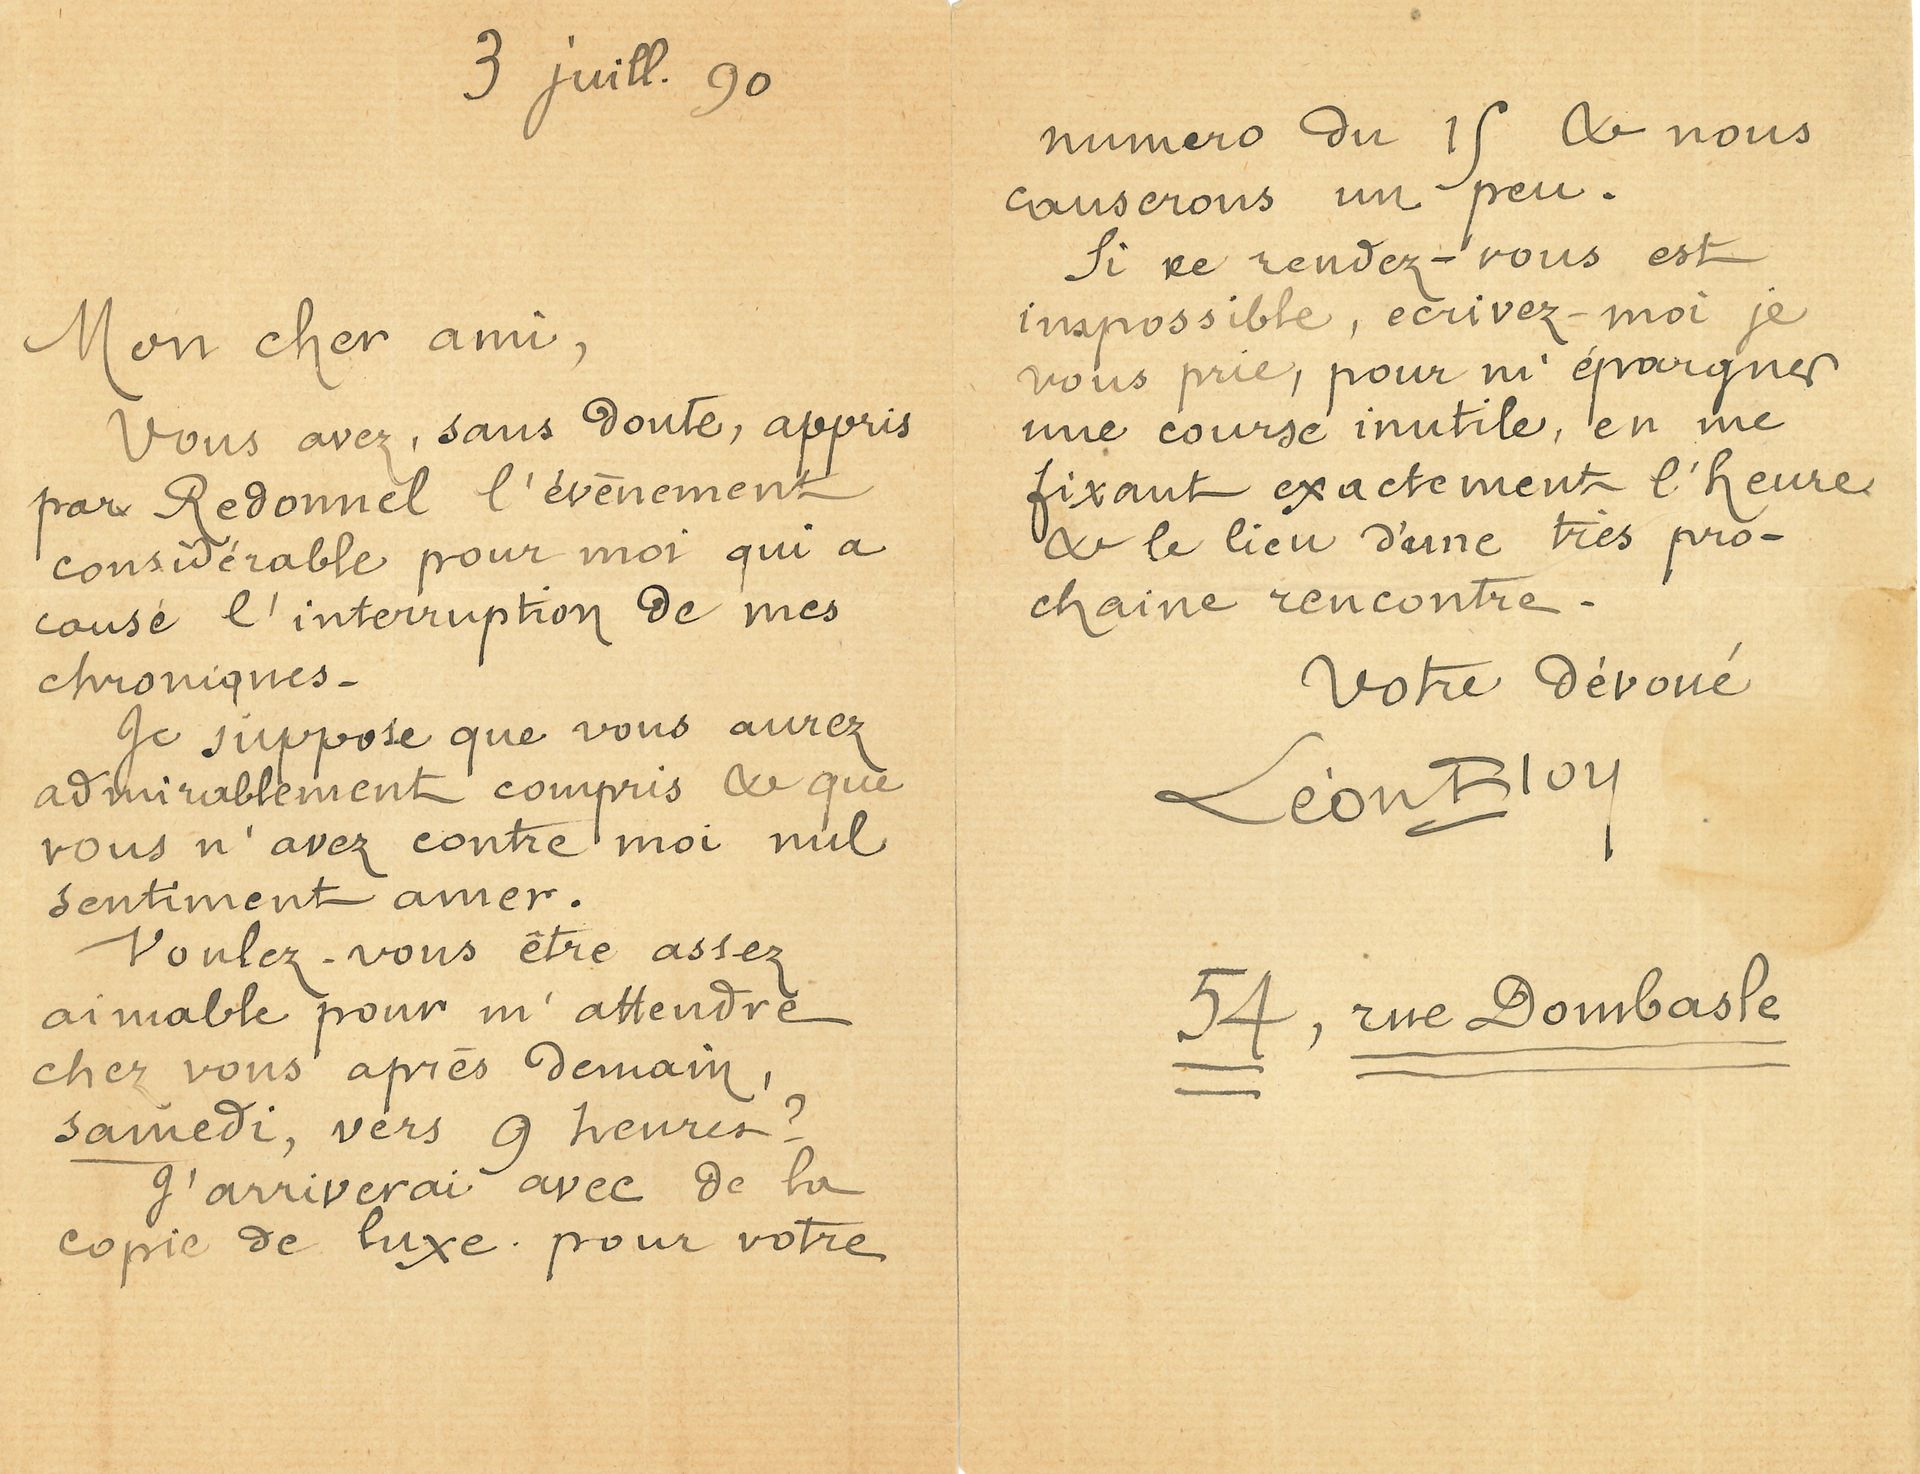 3 juill. 90
Mon cher ami,
Vous avez, sans doute, appris
par Redonnel l'évènement
considérable pour moi qui a
causé l'interruption de mes
chroniques.
Je suppose que vous aurez
admirablement compris & que
vous n'avez contre moi nul
sentiment amer.
Voulez-vous être assez
aimable pour m'attendre
chez vous après demain,
samedi, vers 9 heures?
J'arriverai avec de la
copie de luxe pour votre
numero du 15 & nous
causerons un peu.
Si ce rendez-vous est
impossible, ecrivez-moi je
vous prie, pour m'épargner
une course inutile, en me
fixant exactement l'heure
& le lieu d'une très pro-
chaine rencontre.
Votre dévoué
Léon Bloy
54, rue Dombasle